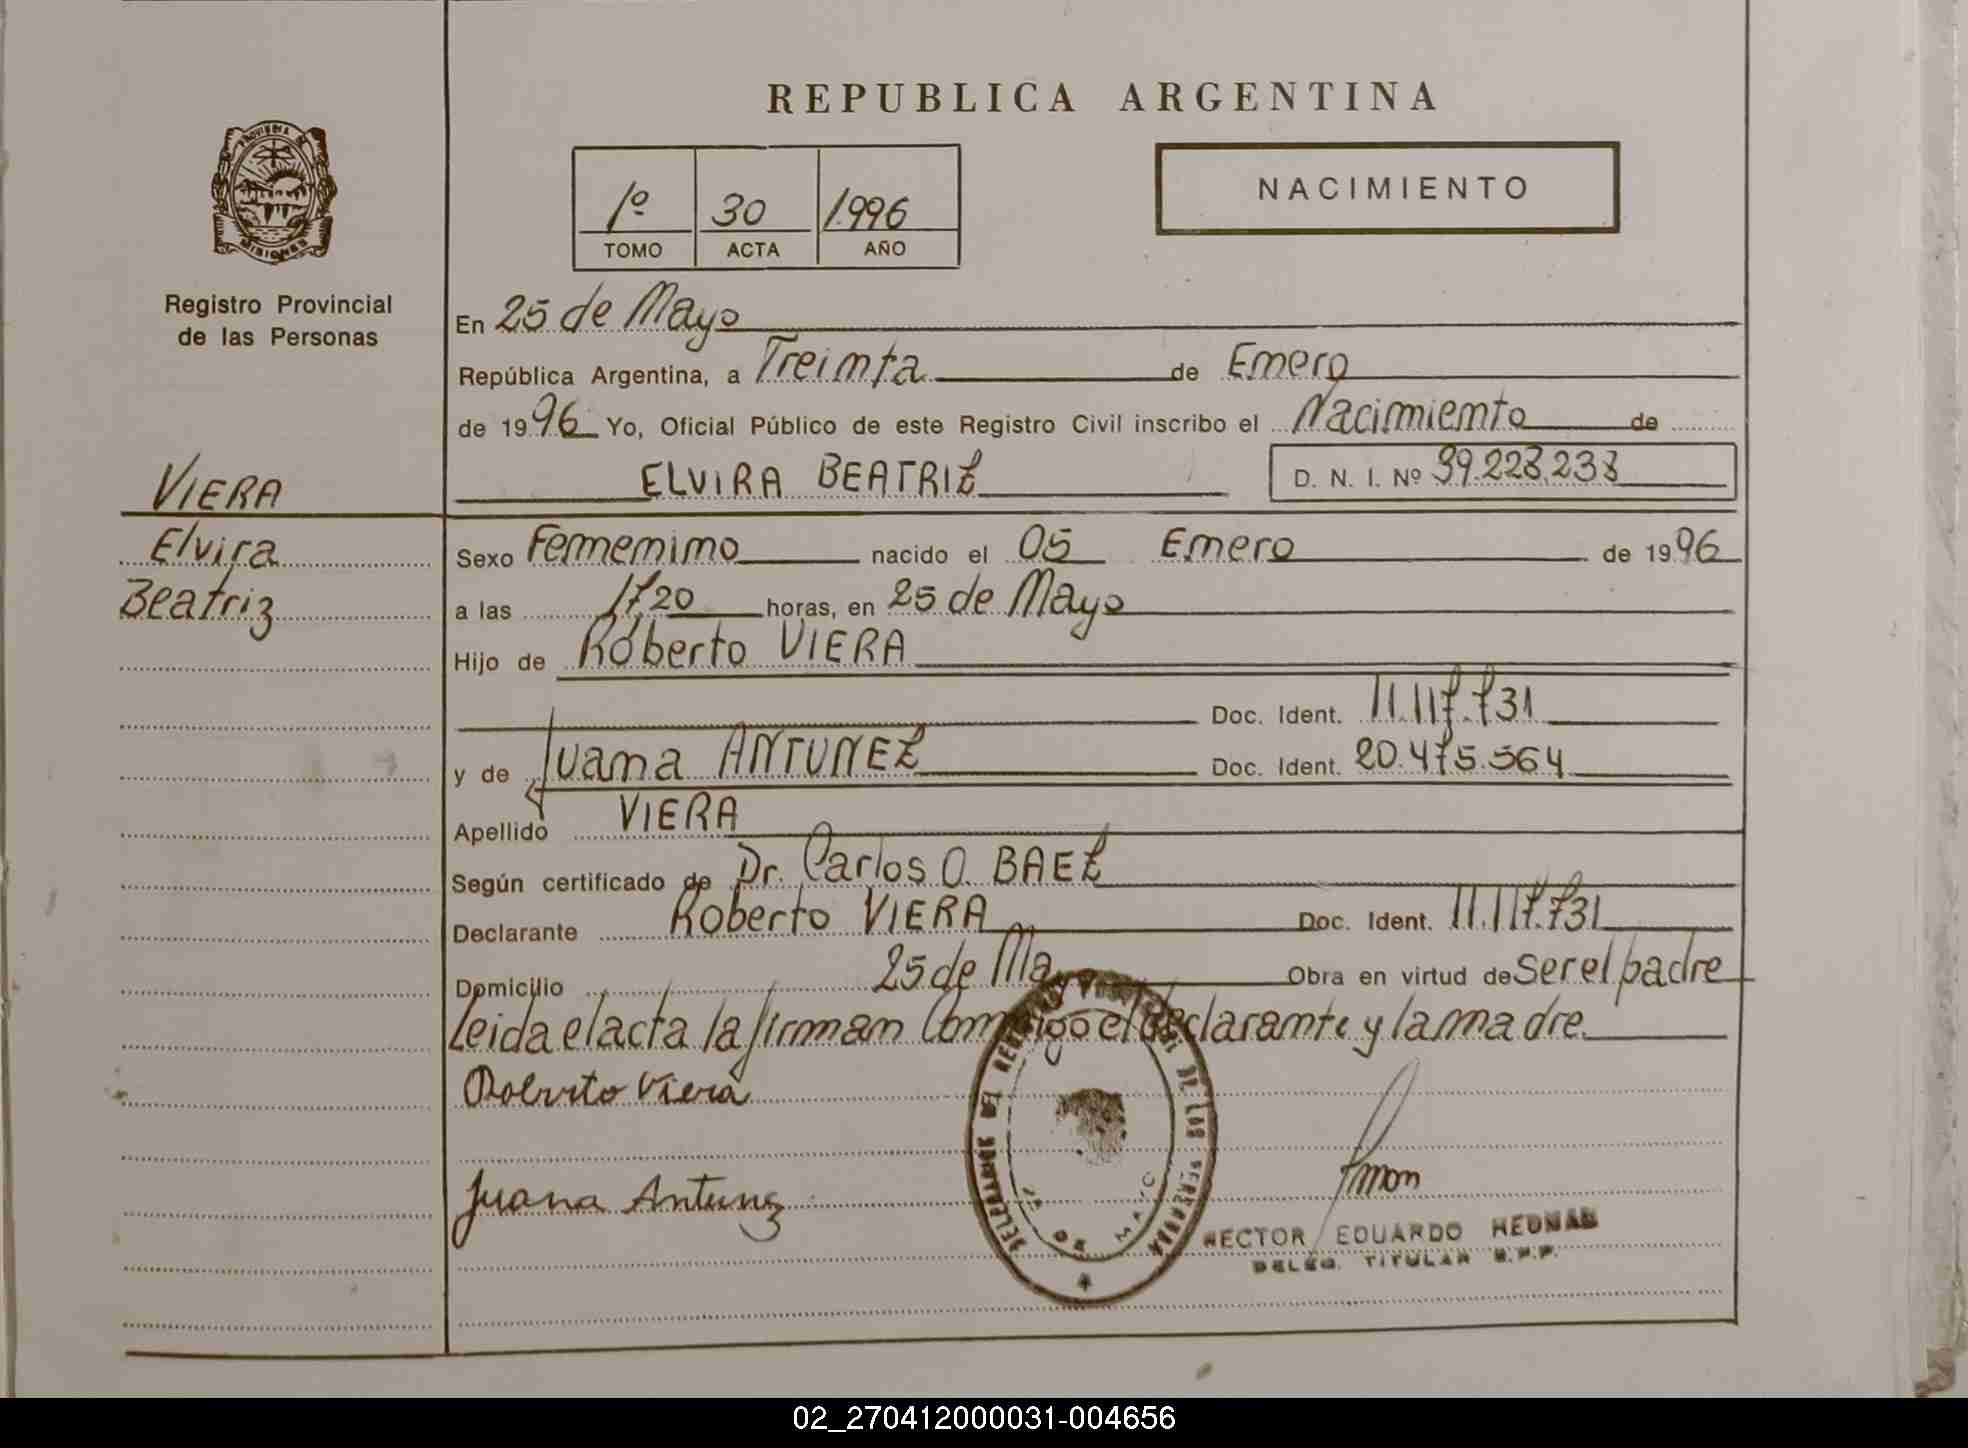 REPUBLICA ARGENTINA
PROVINCIA DE
MISIONES
Registro Provincial
de las Personas
1º 30 1996
TOMO ACTA AÑO
NACIMIENTO
En 25 de Mayo
República Argentina, a Treinta de Enero
de 1996 Yo, Oficial Público de este Registro Civil inscribo el Nacimiento de
VIERA
ELVIRA BEATRIZ D. N. I. Nº 39.223.233
Elvira
Sexo Femenino nacido el 05 Enero de 1996
Beatriz
a las 1720 horas, en 25 de Mayo
Hijo de Roberto VIERA
Doc. Ident. 11.117.731
y de Juana ANTUNEZ Doc. Ident. 20.475.564
Apellido VIERA
Según certificado de Dr. Carlos O. BAEZ
Declarante Roberto VIERA Doc. Ident. 11.117.731
Domicilio 25 de Ma Obra en virtud de ser el padre
Leida el acta la firman Conmigo el declarante y la madre
Roberto Viera
Juana Antunez
DELEGACION DEL REGISTRO PROVINCIAL DE LAS PERSONAS
25 DE MAYO
HECTOR EDUARDO HEDMAN
DELEG. TITULAR R.P.P.
02_270412000031-004656